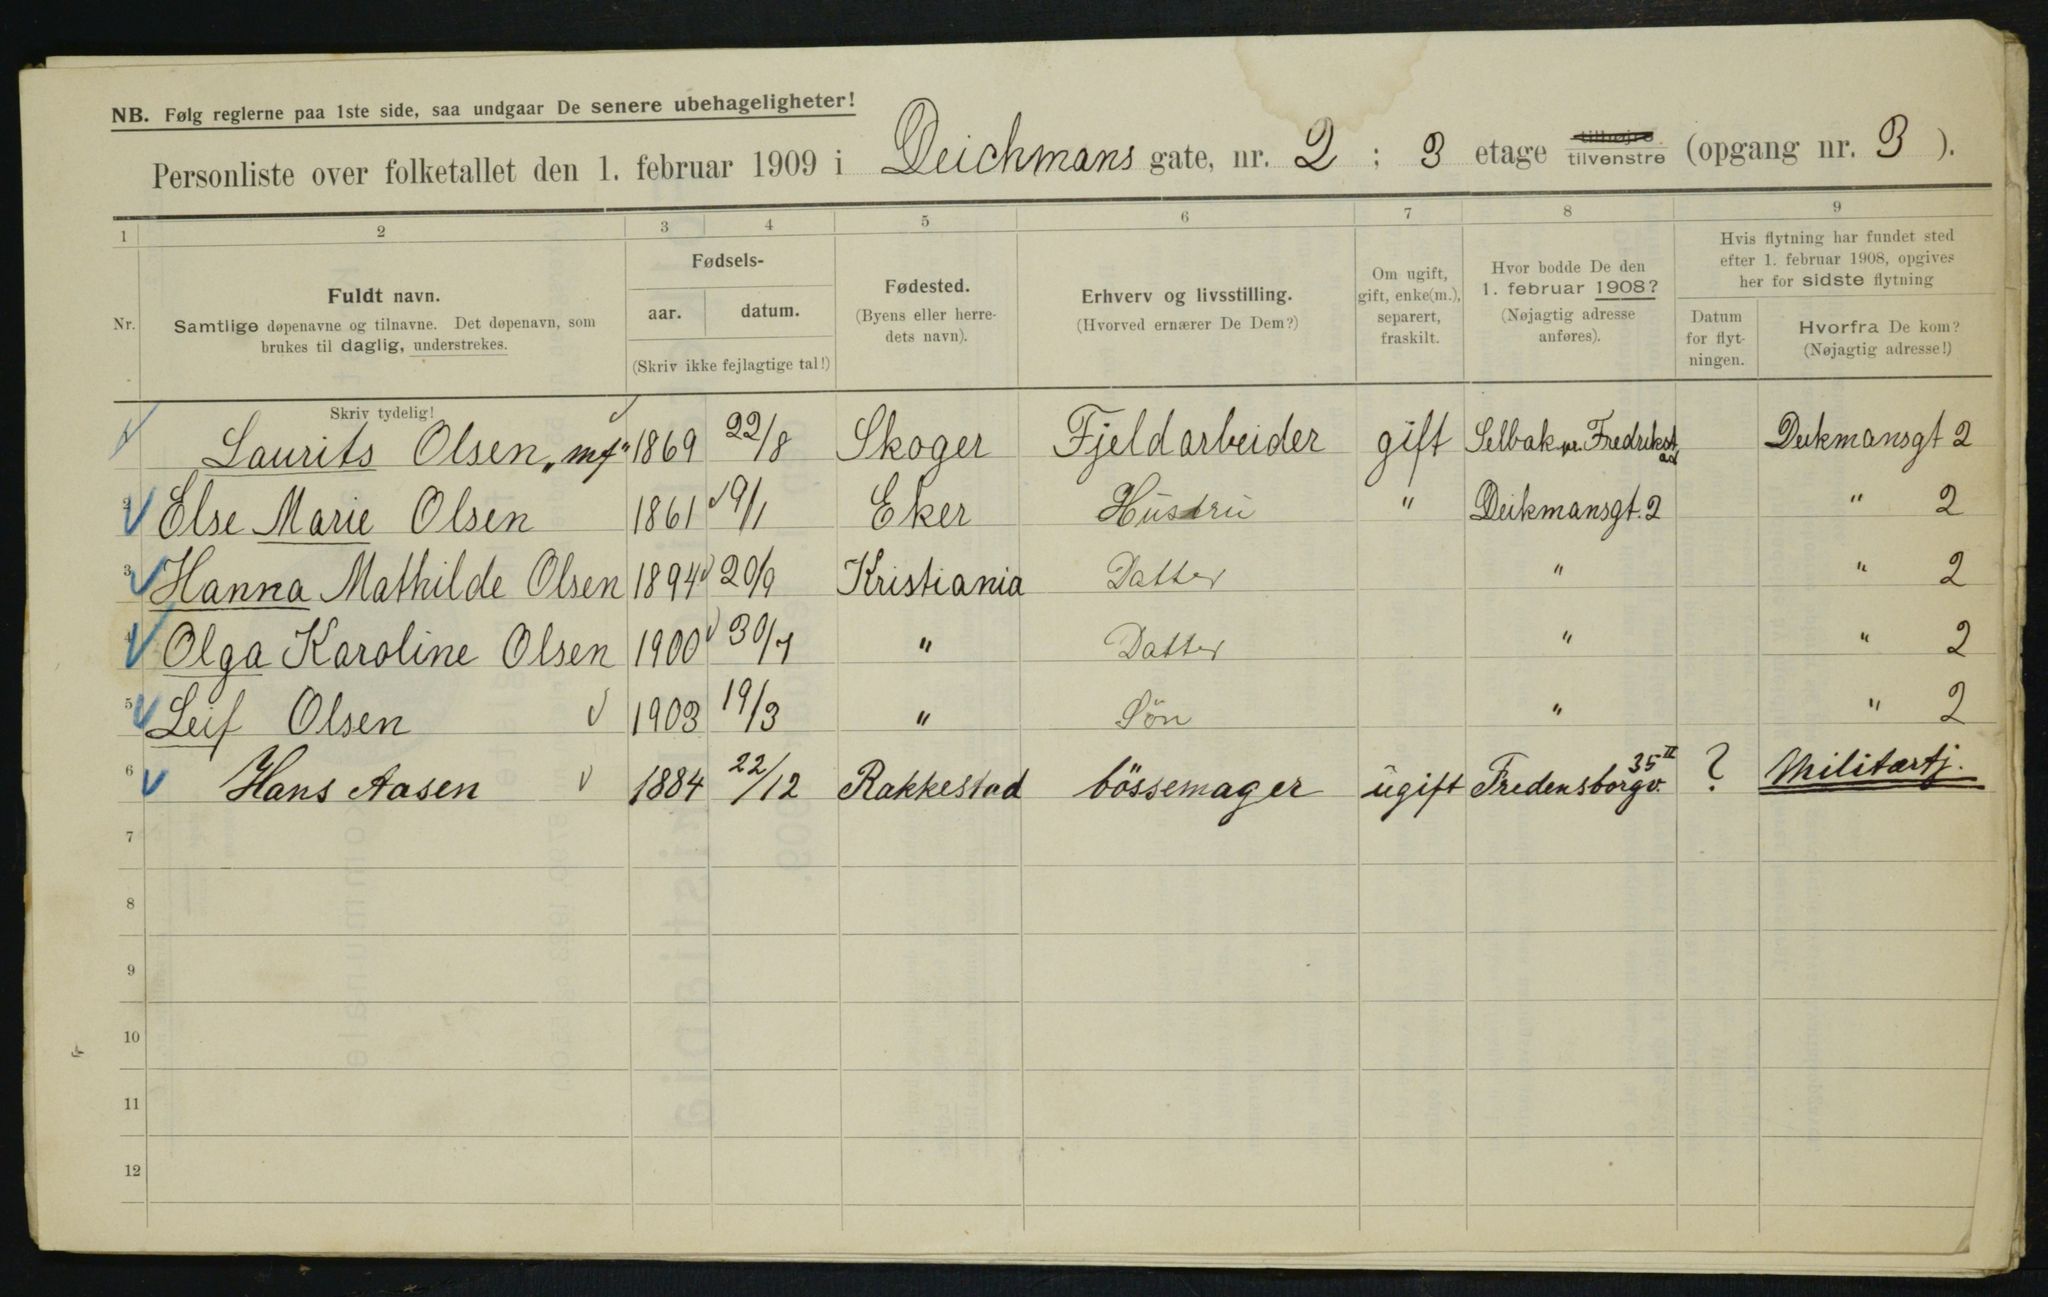 NB. Følg reglerne paa 1ste side, saa undgaar De senere ubehageligheter!
Personliste over folketallet den 1. februar 1909 i Deichmans gate, nr. 2 ; 3 etage tilhøjre tilvenstre (opgang nr. 3 ).
1 2 3 4 5 6 7 8 9
Nr.
Fuldt navn.
Samtlige døpenavne og tilnavne. Det døpenavn, som
brukes til daglig, understrekes.
Fødsels-
aar. datum.
(Skriv ikke fejlagtige tal!)
Fødested.
(Byens eller herre-
dets navn).
Erhverv og livsstilling.
(Hvorved ernærer De Dem?)
Om ugift,
gift, enke(m.),
separert,
fraskilt.
Hvor bodde De den
1. februar 1908?
(Nøjagtig adresse
anføres).
Hvis flytning har fundet sted
efter 1. februar 1908, opgives
her for sidste flytning
Datum
for flyt-
ningen.
Hvorfra De kom?
(Nøjagtig adresse!)
Skriv tydelig!
Laurits Olsen „mf“ 1869 22/8 Skoger Fjeldarbeider gift Selbak nr. Fredrikstad Deikmansgt 2
2 Else Marie Olsen 1861 9/1 Eker Hustru " Deikmansgt. 2 " 2
3 Hanna Mathilde Olsen 1894 20/9 Kristiania Datter " " 2
4 Olga Karoline Olsen 1900 30/7 " Datter " " 2
5 Leif Olsen 1903 19/3 " Sön " " 2
6 Hans Aasen 1884 22/12 Rakkestad bössemager ugift Fredensborgv. 35 II ? Militærtj.
7
8
9
10
11
12